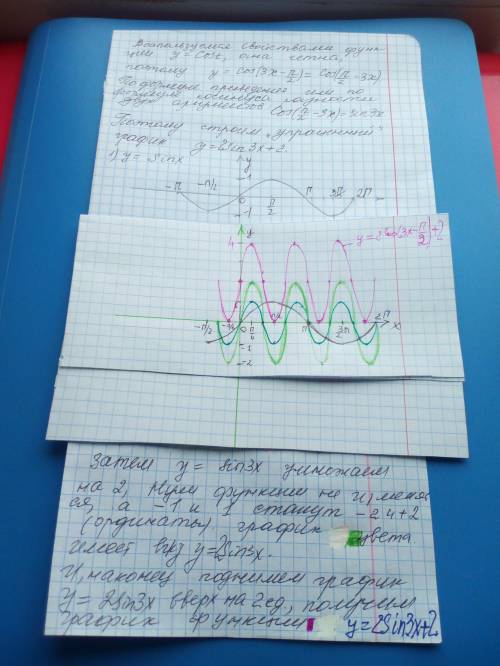 Воспользуемся свойствами функ-
ции y=Cosx, она четна,
поэтому y = Cos(3x-π/2)= Cos(π/2-3x)
По формуле приведения или по
формуле косинуса разности
двух аргументов Cos(π/2-3x)=sin3x
Поэтому строим „упрощенный"
график y=2sin3x+2.
1) y = sinx
y
1
-π -π/2 0 π/2 π 3π/2 2π
-1
y
4
y=2cos(3x-π/2)+2
-π/2 0 π/6 π 3π/2 2π x
-1
-2
Затем y= sin3x умножаем
на 2, Нули функции не изменят-
ся, а -1 и 1 станут -2 и +2
(ординаты) график цвета
имеет вид y=2sin3x.
И, наконец поднимем график
y = 2sin3x вверх на 2ед., получим
график функции y=2sin3x+2